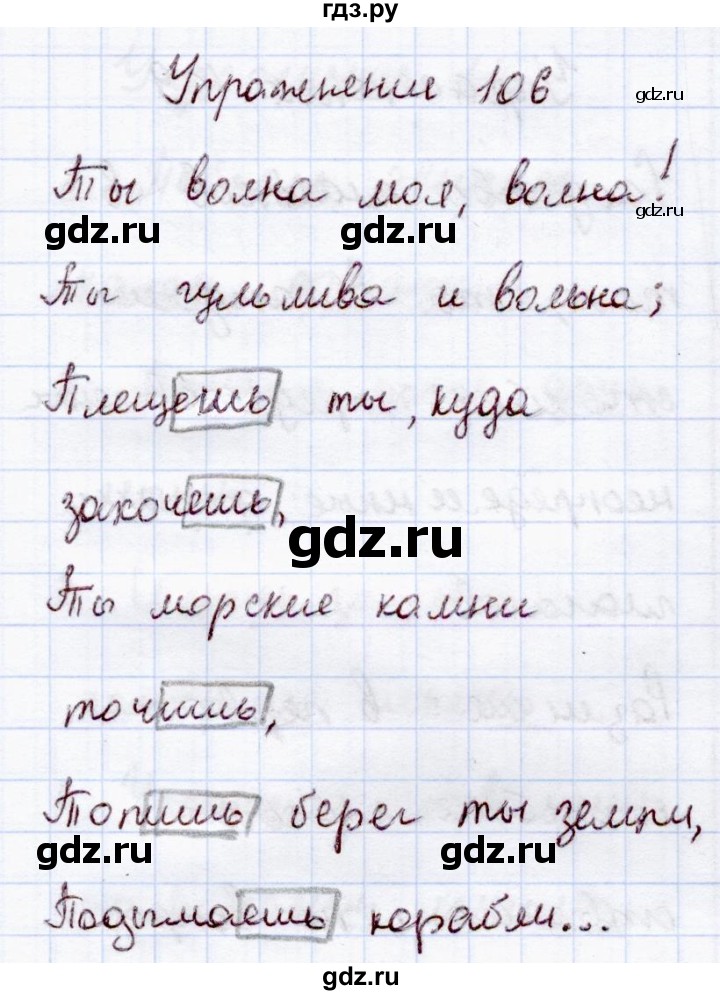 гдз.ру
Упражнение 106
gdz.ru
Ты волна моя, волна!
gdz.ru gdz.ru
Ты гульлива и вольна;
Плещешь ты, куда
захочешь,
gdz.ru
Ты морские камни
точишь,
Топишь берег ты земли,
gdz.ru gdz.ru
Подымаешь корабли...
gdz.ru